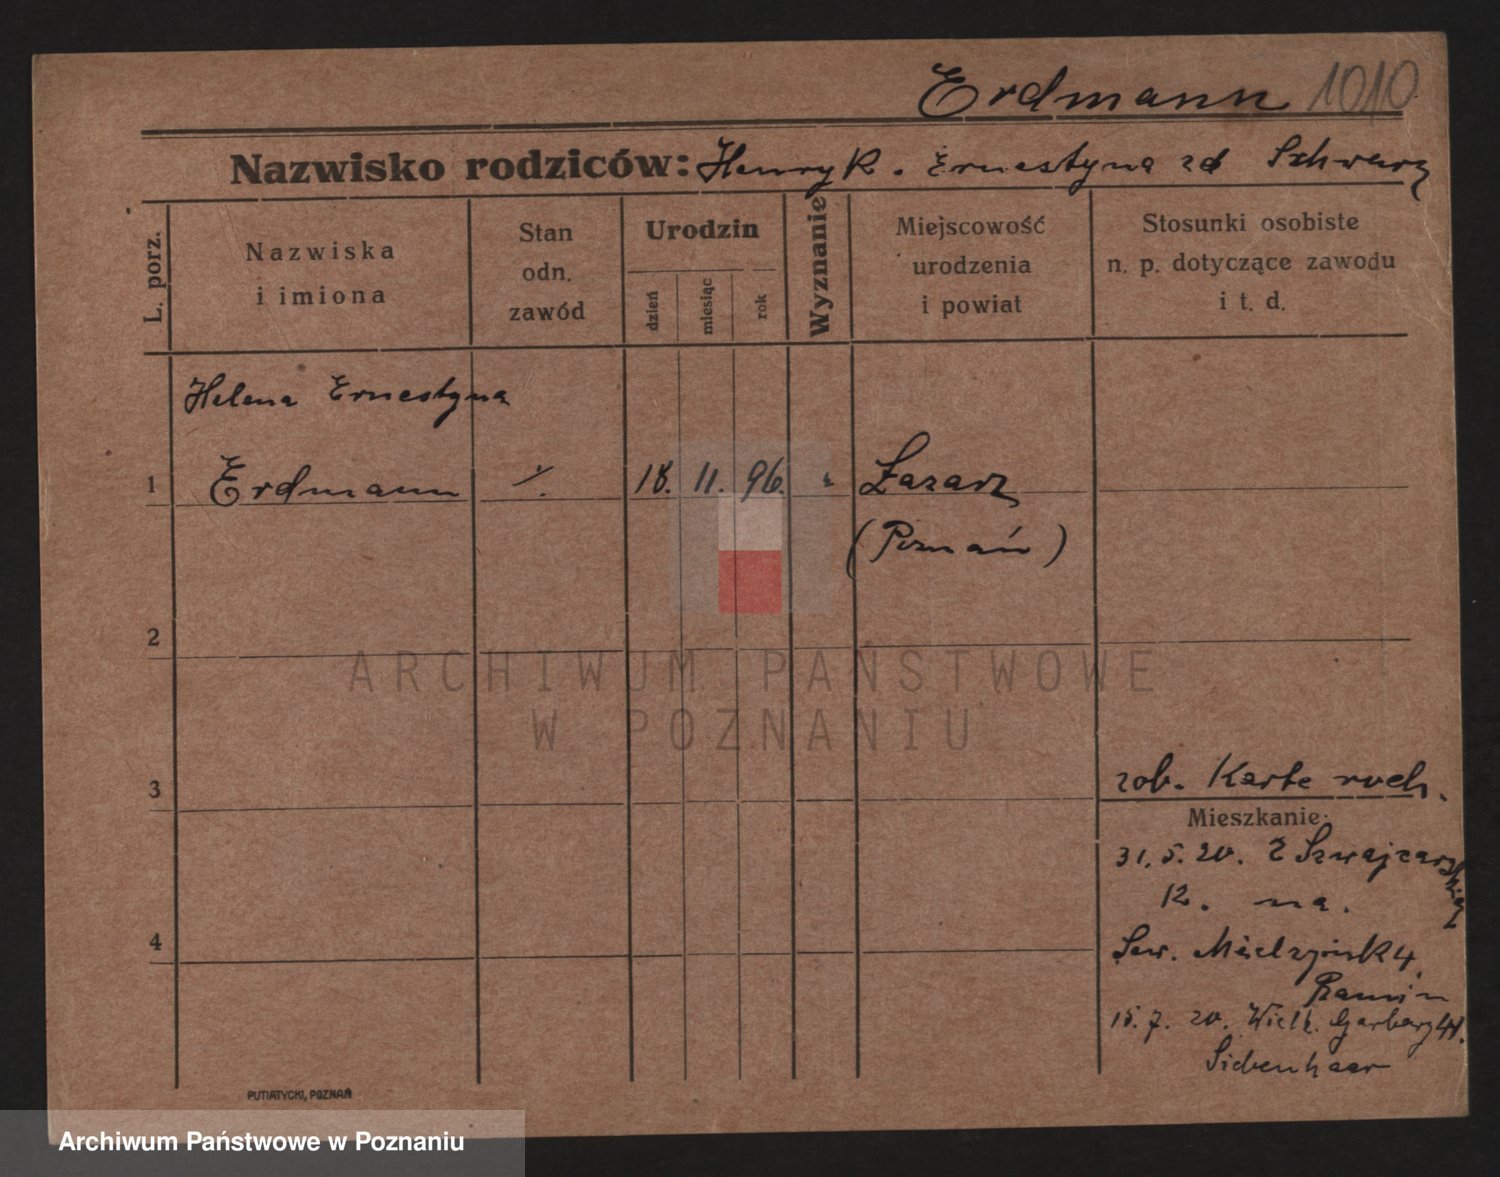 Erdmann 1010
Nazwisko rodziców: Henryk. Ernestyna zd Schwarz
L. porz.
Nazwiska
i imiona
Stan
odn.
zawód
Urodzin
dzień
miesiąc
rok
Wyznanie
Miejscowość
urodzenia
i powiat
Stosunki osobiste
n. p. dotyczące zawodu
i t. d.
Helena Ernestyna
1 Erdmann 18. 11. 96. Łazarz
(Poznań)
2
ARCHIWUM PAŃSTWOWE
W POZNANIU
3
zob. Karte ruch.
Mieszkanie:
31. 5. 20. Z Szwajcarskiej
12. na.
4
Sew. Mielzynsk 4.
15. 7. 20. Wielk. Garbary 44.
Siebenhaar
PUTIATYCKI, POZNAŃ
Archiwum Państwowe w Poznaniu